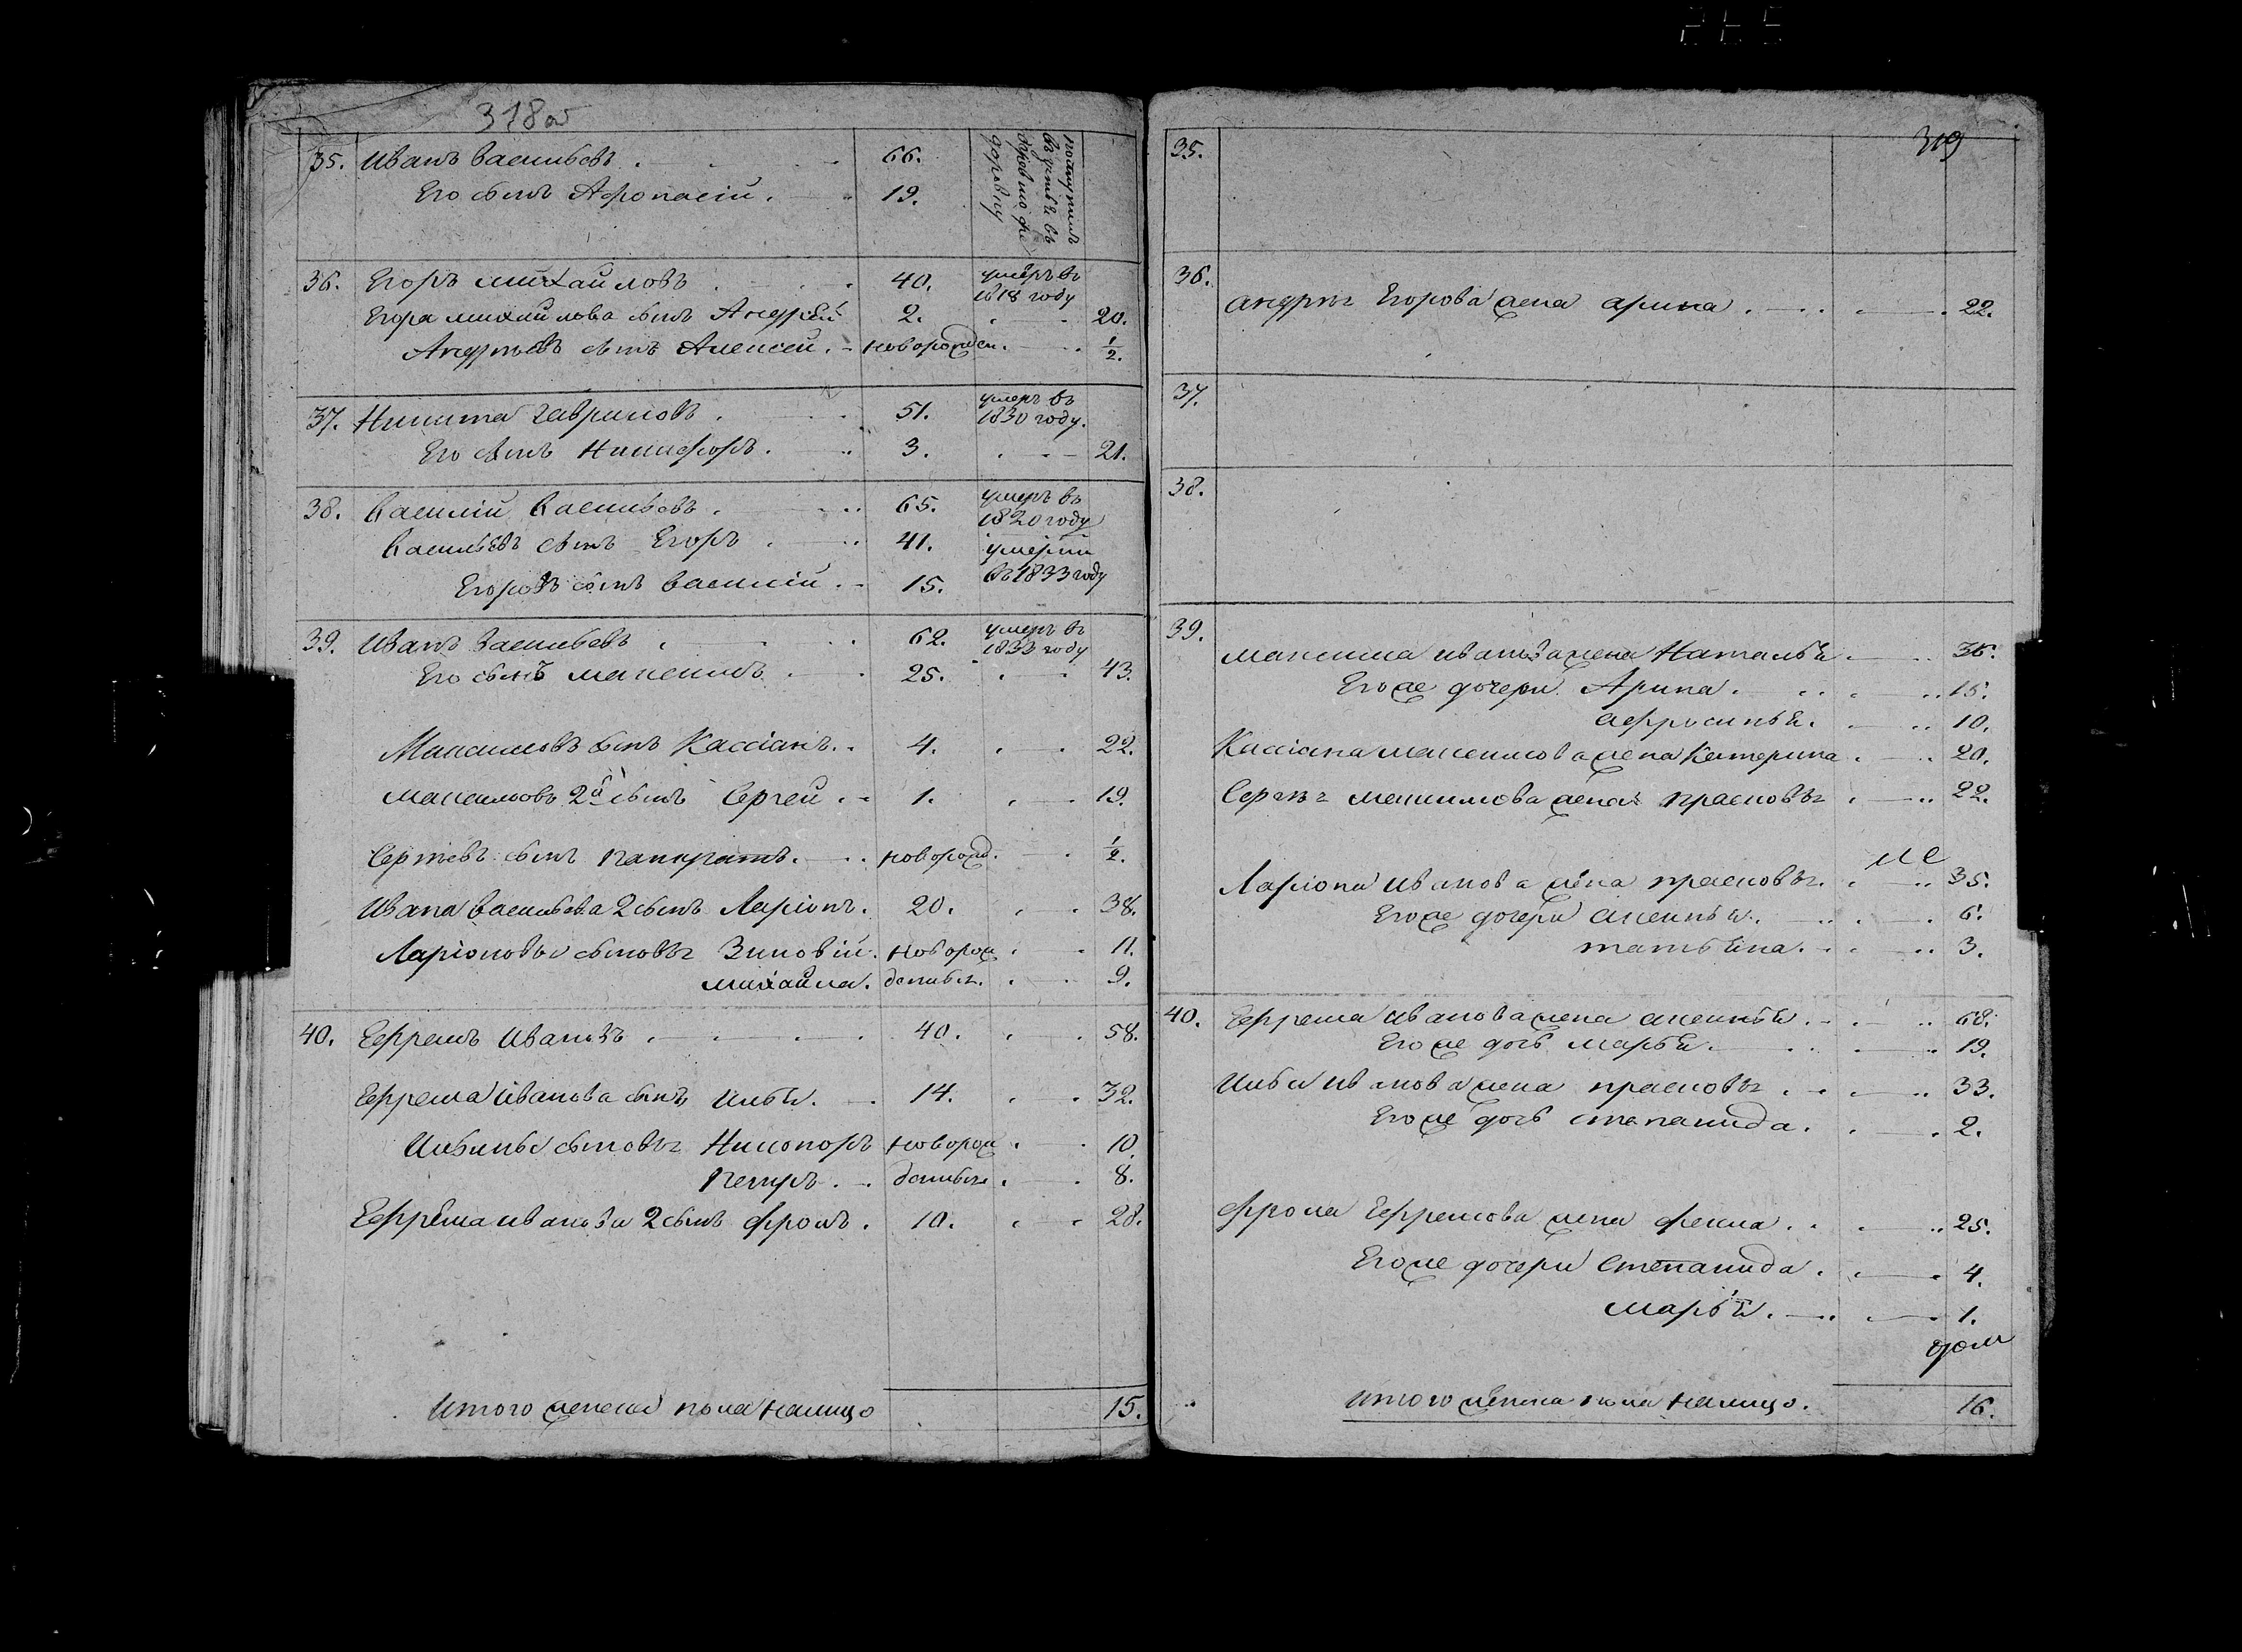 318об
35. Иванъ Васильевъ . 66.
Его сынъ Афонасій . 19.
поступилъ
въ
въ
деревню Фе
доровку
36. Егоръ Михайловъ . 40. умеръ въ
1818 году
Егора Михайлова сынъ Андрей 2. 20.
Андреевъ сынъ Алексей . новорожден. 1/2.
37. Никита Гавриловъ . 51. умеръ въ
1830 году.
Его сынъ Никифоръ . 3. 21.
38. Василій Васильевъ . 65. умеръ въ
1820 году
Васильевъ сынъ Егоръ . 41. умерли
Егоровъ сынъ Василій . 15. въ 1833 году
39. Иванъ Васильевъ . 62. умеръ въ
1833 году
Его сынъ Максимъ 25. 43.
Максимовъ сынъ Кассіанъ . 4. 22.
Максимовъ 2й сынъ Сергей . 1. 19.
Сергѣевъ сынъ Панкратъ . новорожд. 1/2.
Ивана Васильева 2 сынъ Ларіонъ . 20. 38.
Ларіоновы сыновья Зиновій . новорож 11.
Михайла . денные . 9.
40. Ефремъ Ивановъ . 40. 58.
Ефрема Иванова сынъ Илья . 14. 32.
Ильины сыновья Никоноръ новорож 10.
Петръ . денные . 8.
Ефрема Иванова 2 сынъ Фролъ . 10. 28.
Итого мужеска пола налицо 15.
319
35.
36.
Андрея Егорова жена Арина . 22.
37.
38.
39.
Максима Иванова жена Наталья . 36.
Его же дочери Арина . 15.
Афросинья . 10.
Кассіана Максимова жена Катерина . 20.
Сергея Максимова жена Прасковья . 22.
Ларіона Иванова жена Прасковья . 35.
Его же дочери Аксинья . 6.
Татьяна . 3.
40. Ефрема Иванова жена Аксинья . 68.
Его же дочь Марья . 19.
Ильи Иванова жена Прасковья . 33.
Его же дочь Степанида . 2.
Фрола Ефремова жена Фекла . 25.
Его же дочери Степанида . 4.
Марья . 1.
Итого женска пола налицо . 16.